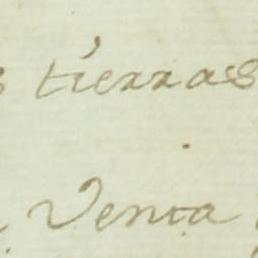 tierras
Venta